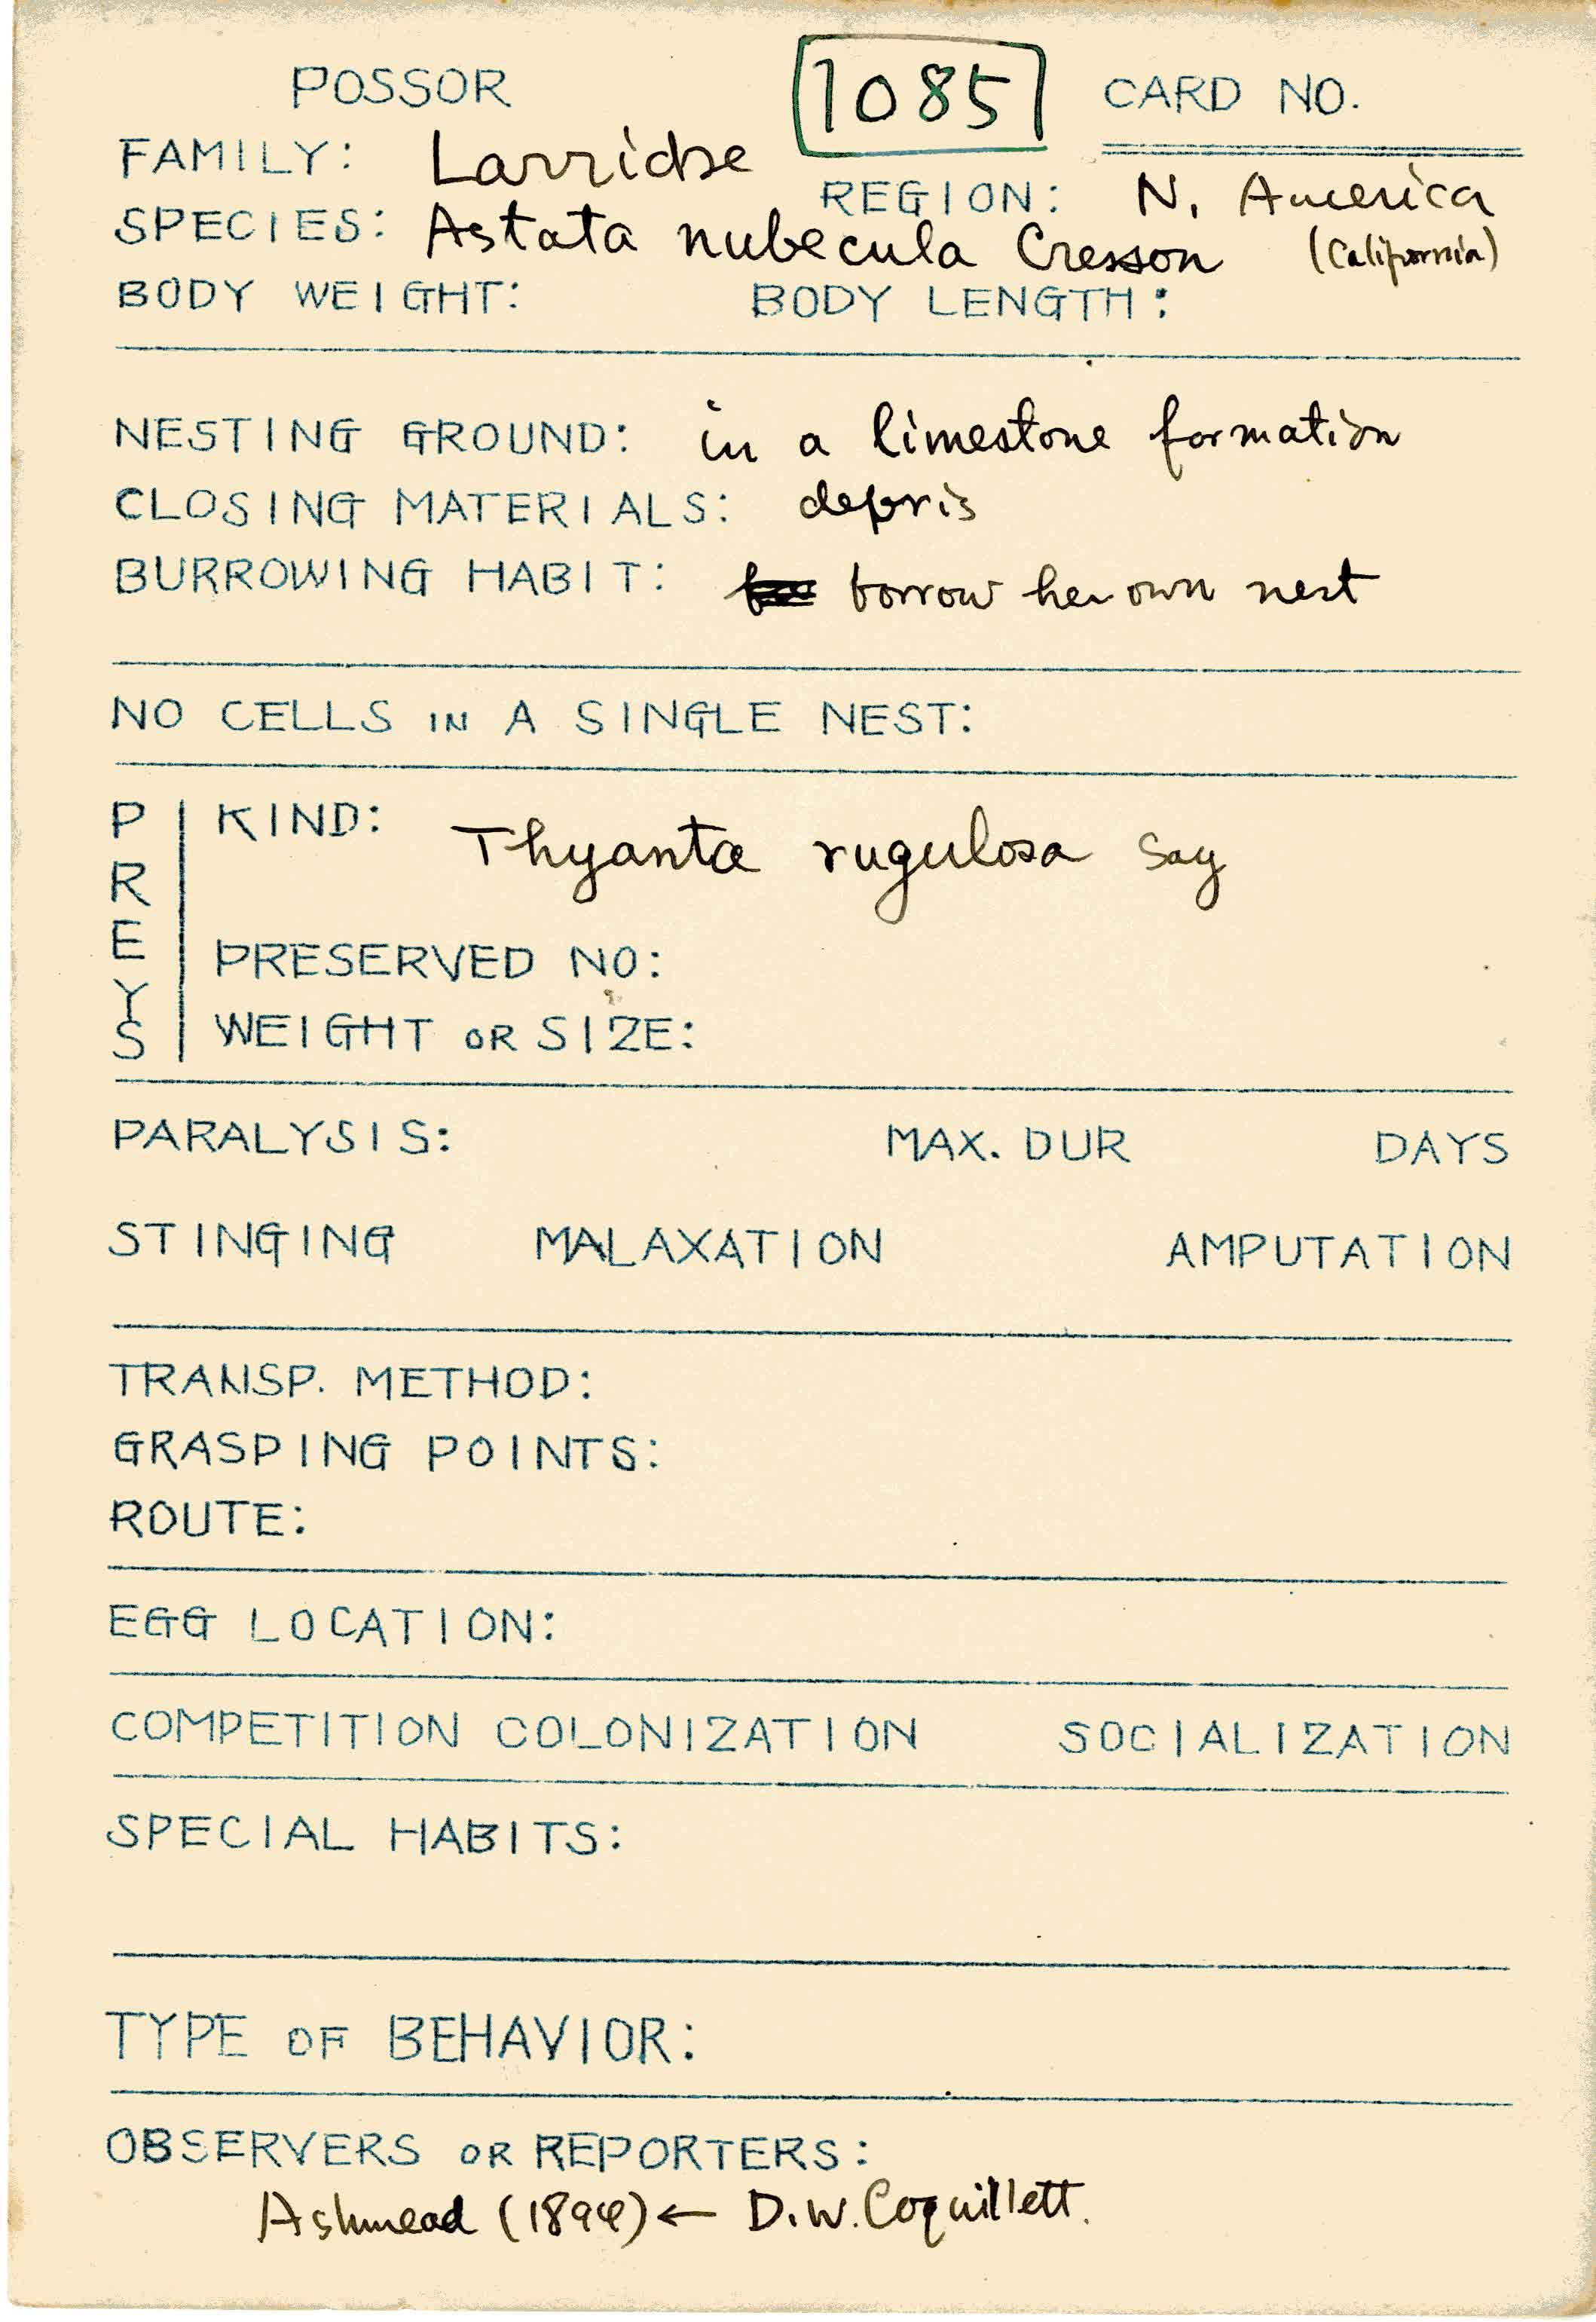 POSSOR 1085 CARD NO.
FAMILY: Larridae
REGION: N. America
SPECIES: Astata nubecula Cresson (California)
BODY WEIGHT: BODY LENGTH:
NESTING GROUND: in a limestone formation
CLOSING MATERIALS: debris
BURROWING HABIT: borrow her own nest
NO CELLS IN A SINGLE NEST:
PREYS
KIND: Thyanta rugulosa Say
PRESERVED NO:
WEIGHT OR SIZE:
PARALYSIS: MAX. DUR DAYS
STINGING MALAXATION AMPUTATION
TRANSP. METHOD:
GRASPING POINTS:
ROUTE:
EGG LOCATION:
COMPETITION COLONIZATION SOCIALIZATION
SPECIAL HABITS:
TYPE OF BEHAVIOR:
OBSERVERS OR REPORTERS:
Ashmead (1894) ← D.W. Coquillett.